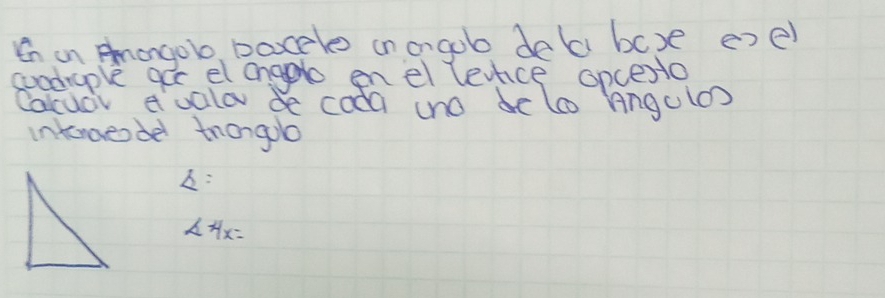 En un triangulo isoceles un angulo de la base es el
cuadruple que el angulo en el vertice opuesto
Calcular el valor de cada uno de los Angulos
internos del triangulo
∡:
∡4x=